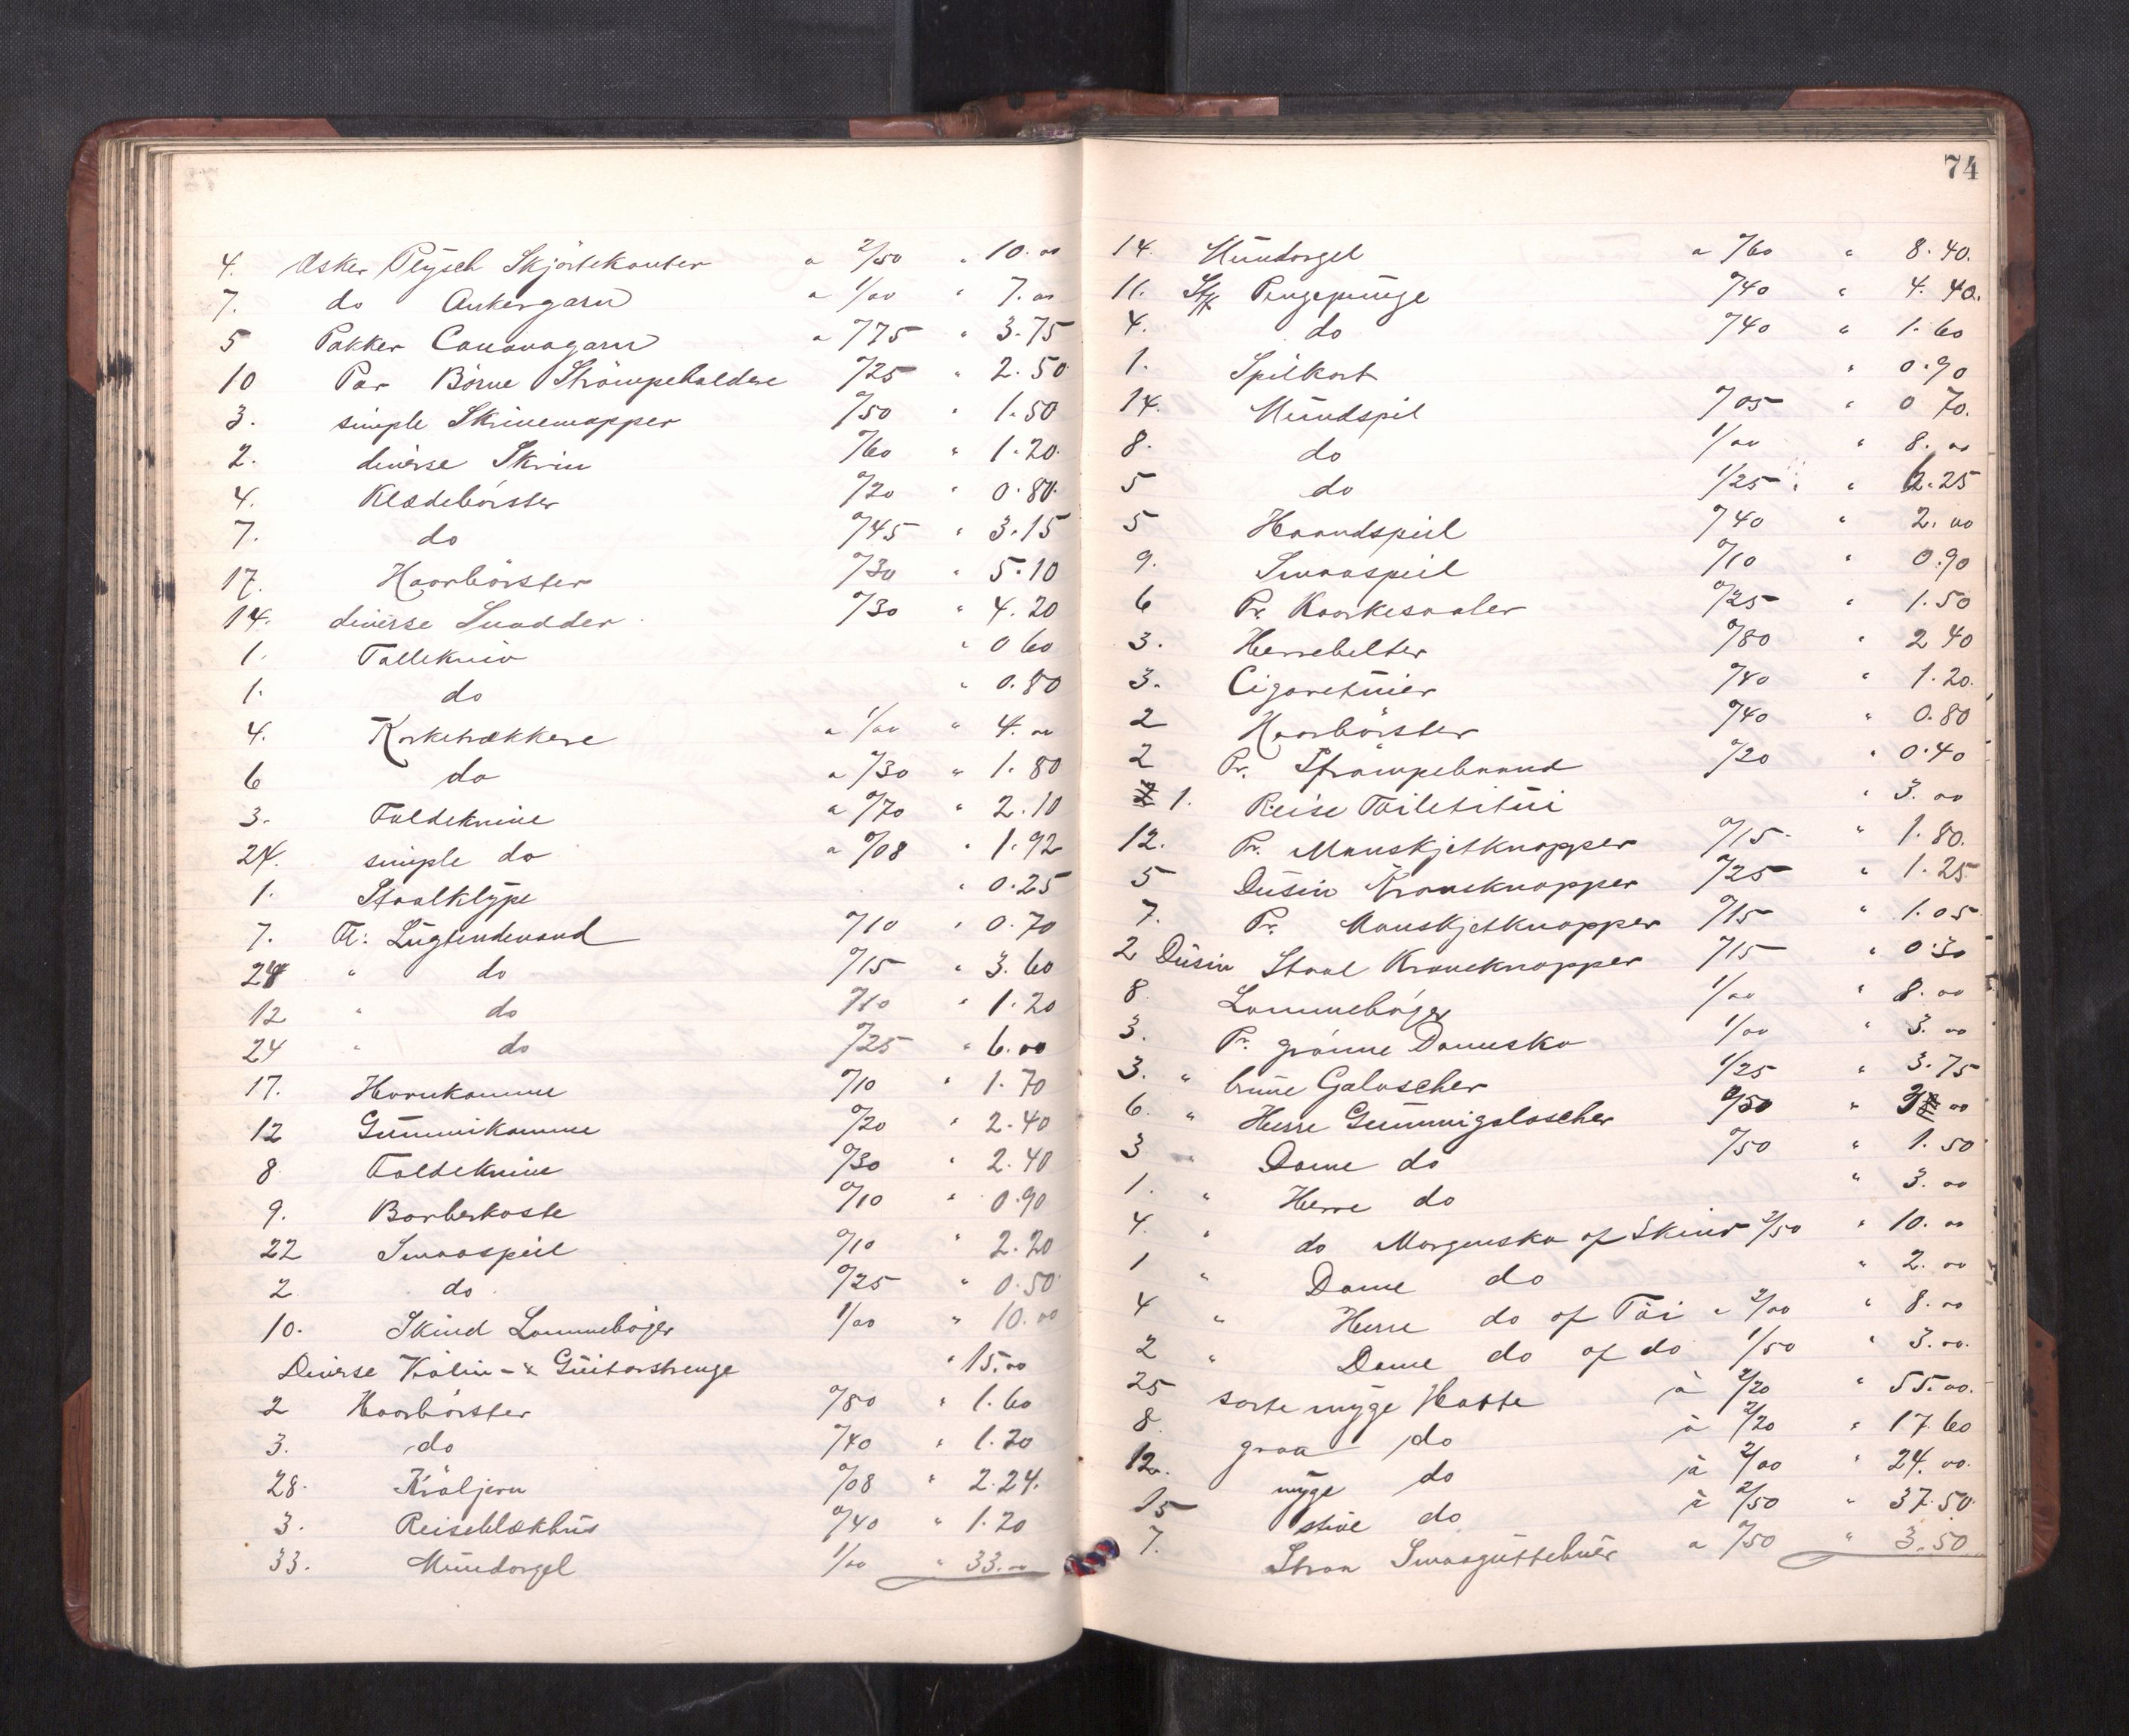 4. Æsker Plysch Skjörtekanter a 2/50 " 10.00
7. do Ankergarn a 1/00 " 7.00
5 Pakker Canavagarn a 0/75 " 3.75
10 Par Börne Strömpeholdere 0/25 " 2.50
3. simple Skrinemapper 0/50 " 1.50
2. diverse Skrin 0/60 " 1.20
4. Klædebörster 0/20 " 0.80
7. do 0/45 " 3.15
17. Haarbörster 0/30 " 5.10
14. diverse 0/30 " 4.20
1. Tollekniv " 0 60
1. do " 0.80
4. Korketrækkere a 1/00 " 4.00
6 do a 0/30 " 1.80
3. Foldeknive a 0/70 " 2.10
24. simple do a 0/08 " 1.92
1. Staalklype " 0.25
7. Fl: Lugtendevand 0/10 " 0.70
24 " do 0/15 " 3.60
12 " do 0/10 " 1.20
24 " do 0/25 " 6.00
17. Hornkamme 0/10 " 1.70
12 Gummikamme 0/20 " 2.40
8 Foldeknive 0/30 " 2.40
9. Barberkoste 0/10 " 0.90
22 Smaaspeil 0/10 " 2.20
2 do 0/25 " 0.50
10. Skind Lommeböger 1/00 " 10.00
Diverse Violin- & Guitarstrenge " 15.00
2 Haarbörster 0/80 " 1.60
3. do 0/40 " 1.20
28. Kröljern 0/08 " 2.24.
3. Reiseblækhus 0/40 " 1.20
33. Mundorgel 1/00 " 33.00
74
14. Mundorgel a 0/60 " 8.40.
11. Stk Pengepunge 0/40 " 4.40.
4. do 0/40 " 1.60
1. Spilkort " 0.90
14. Mundspil 0/05 " 0 70.
8. do 1/00 " 8.00
5 do 1/25 " 6.25
5 Haandspeil 0/40 " 2.00
9. Smaaspeil 0/10 " 0.90
6 Pr. Korkesaaler 0/25 " 1.50
3. Herrebelter 0/80 " 2 40
3. Cigaretuier 0/40 " 1.20.
2 Haarbörster 0/40 " 0.80
2 Pr. Strömpebaand 0/20 " 0.40
1. Reise Toiletitui " 3.00
12. Pr. Manskjetknapper 0/15 " 1.80.
5 Dusin Kraveknapper 0/25 " 1.25
7. Pr. Manskjetknapper 0/15 " 1.05
2 Dusin Staal Kraveknapper 0/15 " 0.30
8. Lommebøger 1/00 " 8.00
3. Pr. grönne Damesko 1/00 " 3.00
3. " brune Galoscher 1/25 " 3.75
6. " Herre Gummigaloscher 0/50 " 3 00
3 " Dame do 0/50 " 1.50
1. " Herre do " 3.00
4. " do Morgensko af Skind 2/50 " 10.00
1 " Dame do " 2.00
4 " Herre do af Töi a 2/00 " 8.00
2 " Dame do af do 1/50 " 3.00.
25 sorte myge Hatte à 2/20 " 55.00.
8. graa do à 2/20 " 17.60
12. myge do à 2/00 " 24.00.
15 stive do à 2/50 " 37.50
7. Straa Smaaguttehuer a 0/50 " 3.50